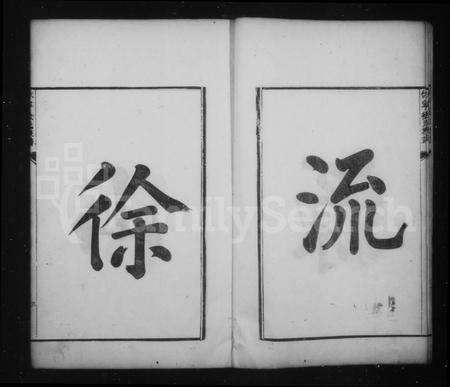 流
徐
FamilySearch